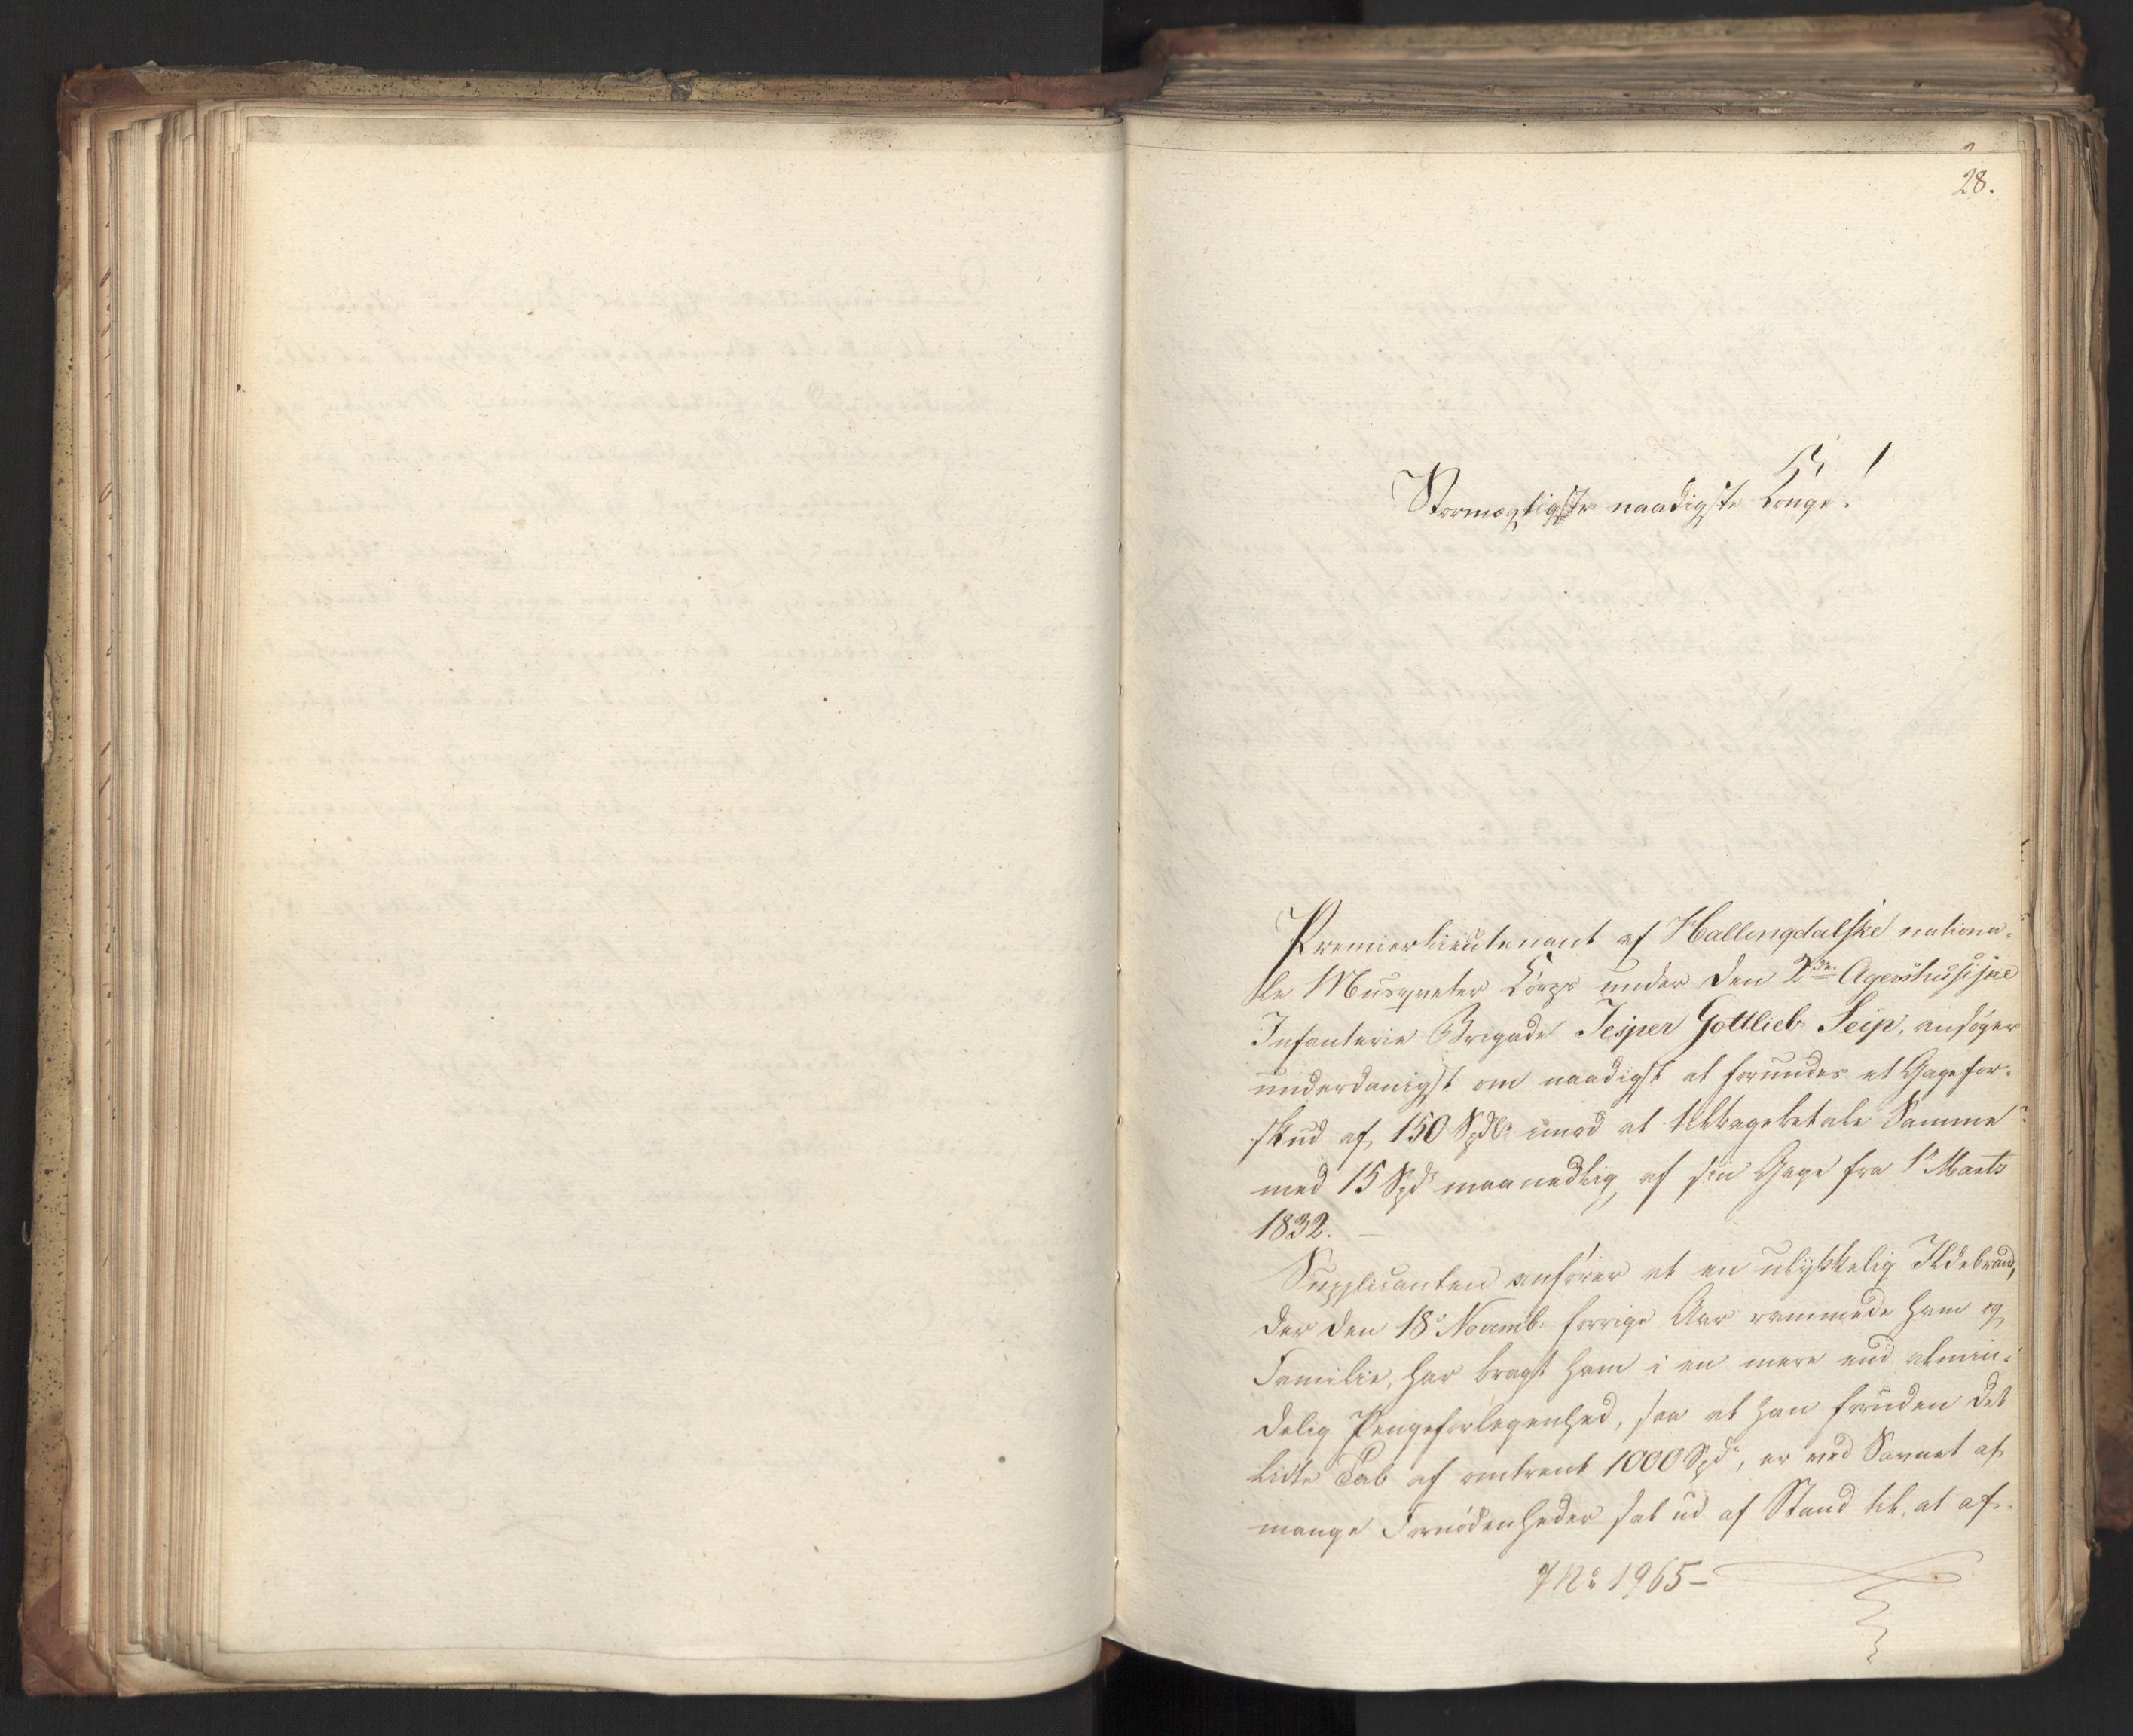 28.
Stormægtigste naadigste Konge!
Premierlieutenant af Hallingdalske nationa-
le Musqueter Corps under den 2den Agershusiske
Infanterie Brigade Jesper Gottlieb Seip, ansøger
underdanigst om naadigst at forundes et Gagefor-
skud af 150 Spdlr imod at tilbagebetale Samme
med 15 Spd maanedlig af sin Gage fra 1ste Marts
1832. —
Supplicanten anfører at en ulykkelig Ildebrand,
der den 18de Novemb: forrige Aar rammede ham og
Familie, har bragt ham i en mere end almin-
delig Pengeforlegenhed, saa at han foruden det
lidte Tab af omtrent 1000 Spdr, er ved Savnet af
mange Fornødenheder sat ud af Stand til, at af-
No 1965 —